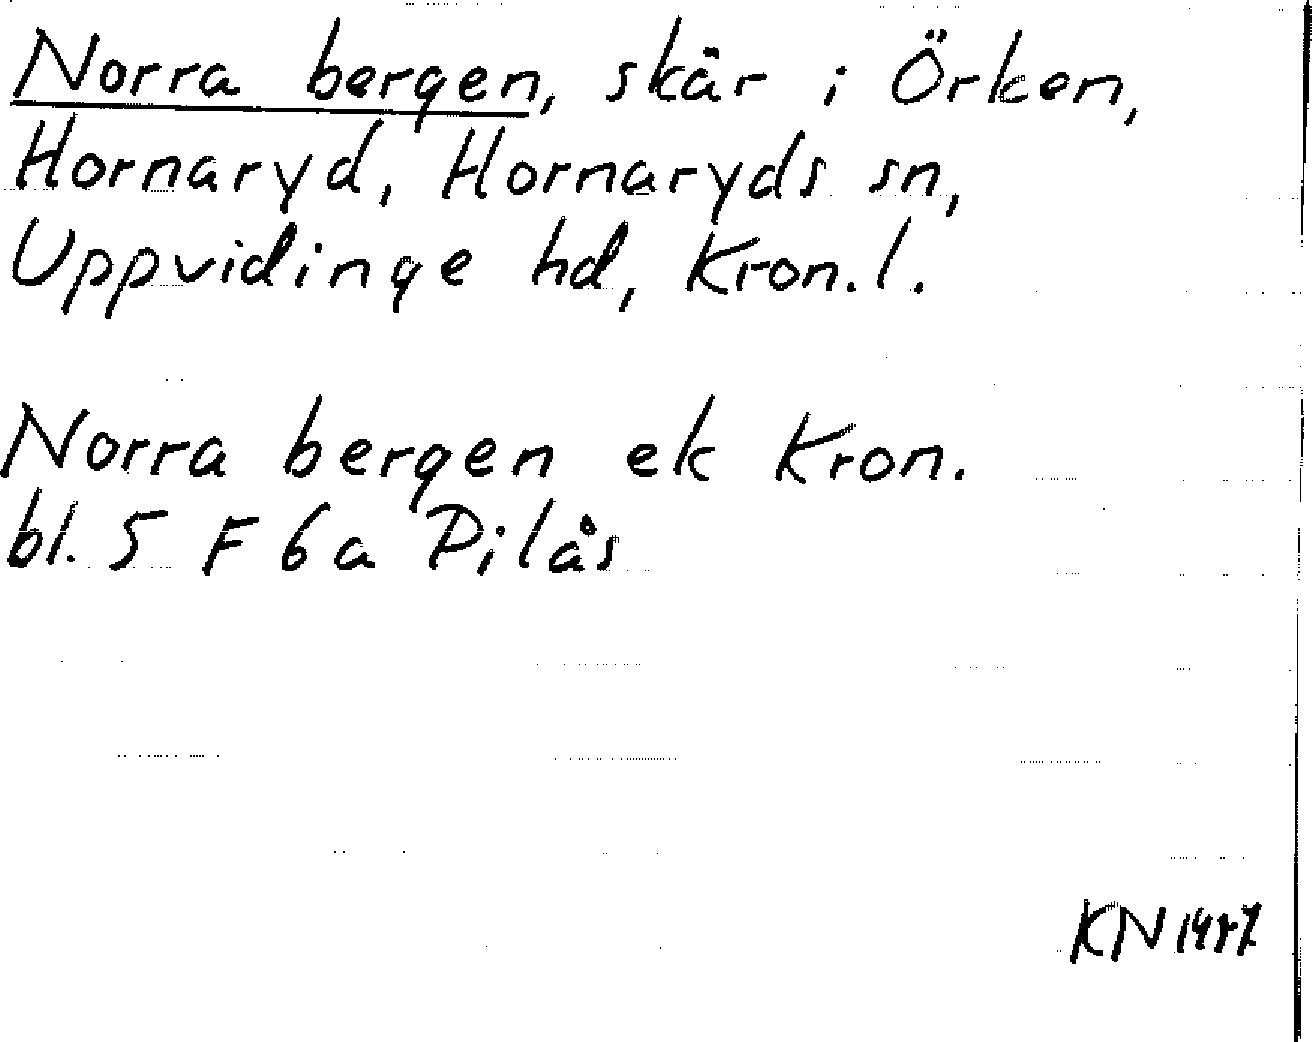 Norra bergen, skär i Örken,
Hornaryd, Hornaryds sn,
Uppvidinge hd, Kron. l.
Norra bergen ek Kron.
bl. 5 F 6a Pilås
KN